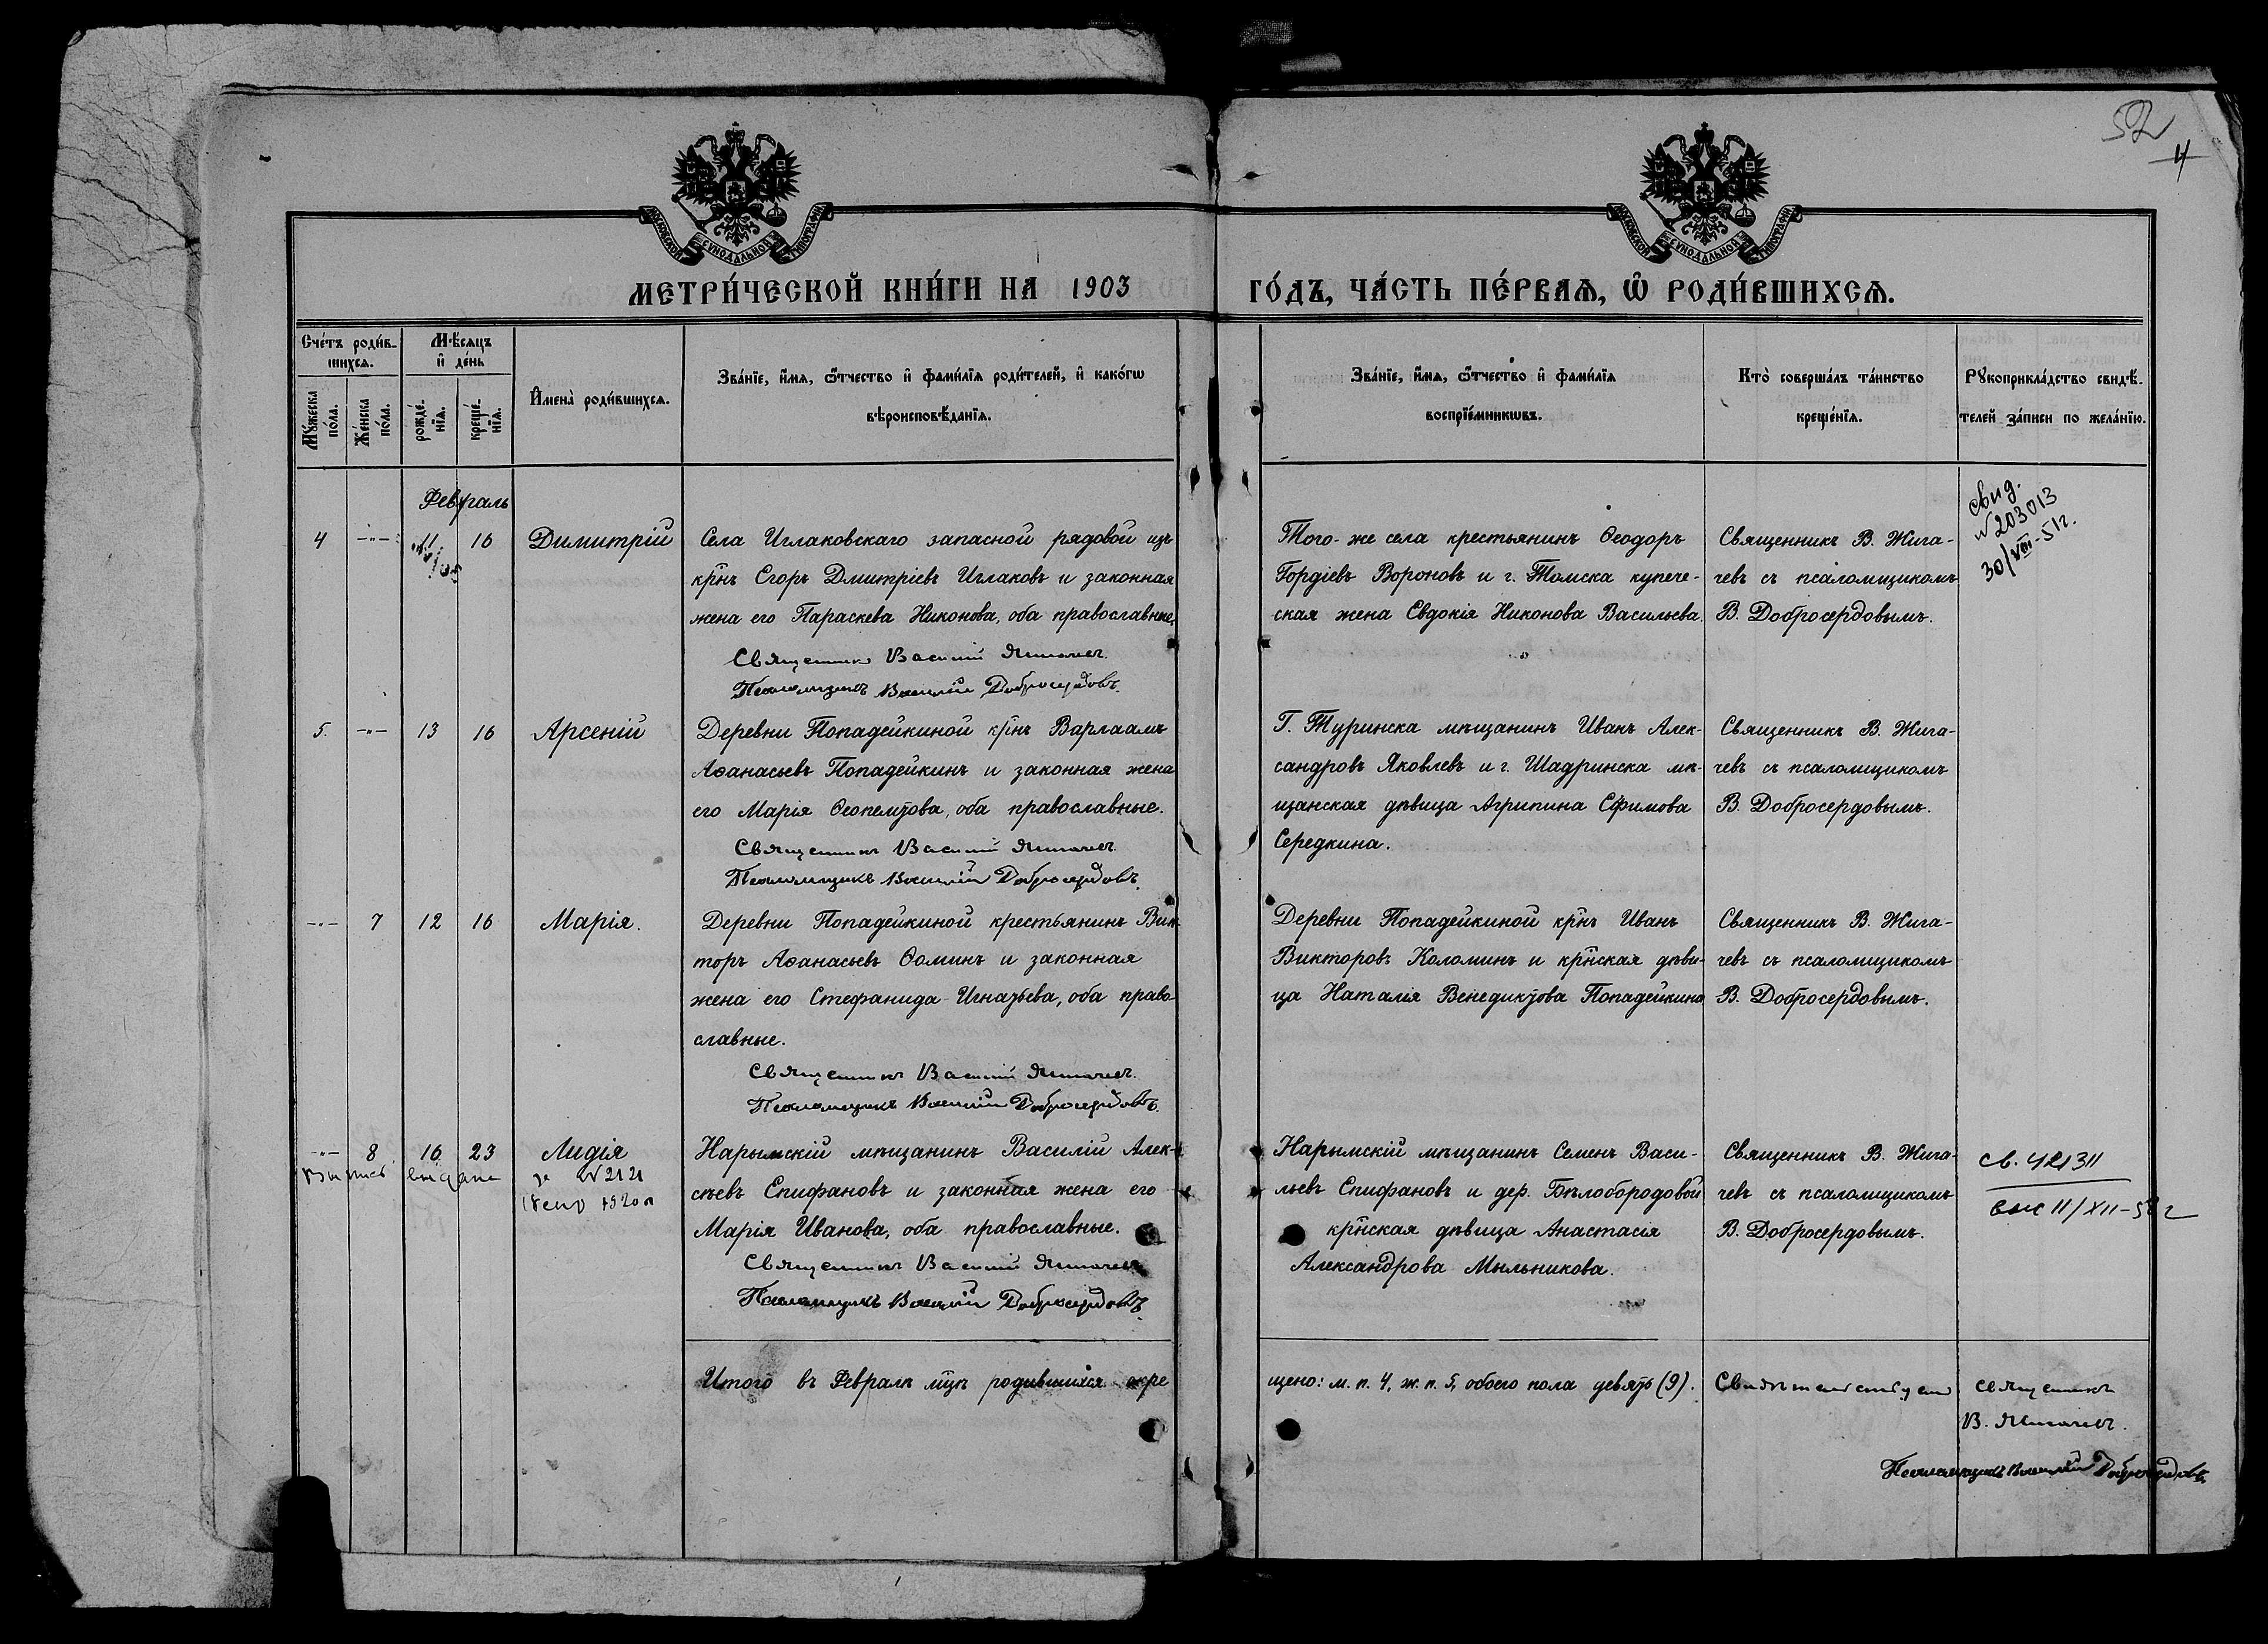 52
4
МОСКОВСКОЙ СѴНОДАЛЬНОЙ ТИПОГРАФІИ
МОСКОВСКОЙ СѴНОДАЛЬНОЙ ТИПОГРАФІИ
МЕТРИ́ЧЕСКОЙ КНИ́ГИ НА 1903 ГО́ДЪ, ЧА́СТЬ ПЕ́РВАѦ, Ѡ РОДИ́ВШИХСѦ.
Сче́тъ роди́в-
шихсѧ.
Мꙋ́жеска по́ла.
Же́нска по́ла.
Мѣ́сѧцъ
и҆ де́нь
рожде́-
нїѧ.
креще́-
нїѧ.
И҆мена̀ роди́вшихсѧ.
Зва́нїе, и҆́мѧ, ѻ҆́тчество и҆ фами́лїѧ роди́телей, и҆ како́гѡ
вѣроисповѣ́данїѧ.
Зва́нїе, и҆́мѧ, ѻ҆́тчество и҆ фами́лїѧ
воспрїе́мникѡвъ.
Кто̀ соверша́лъ та́инство
креще́нїѧ.
Рꙋкоприкла́дство свидѣ́-
телей за́писи по жела́нїю.
Февраль
4 -"- 11 16 Димитрій
Села Иглаковскаго запасной рядовой изъ
кр̃нъ Егоръ Дмитріевъ Иглаковъ и законная
жена его Параскева Никонова, оба православные.
Священникъ Василій Жигачевъ.
Псаломщикъ Василій Добросердовъ.
Того-же села крестьянинъ Ѳеодоръ
Гордіевъ Вороновъ и г. Томска купече-
ская жена Евдокія Никонова Васильева.
Священникъ В. Жига-
чевъ съ псаломщикомъ
В. Добросердовымъ.
свид.
№203013
30/VIII-51г.
5. -"- 13 16 Арсеній
Деревни Попадейкиной кр̃нъ Варлаамъ
Аѳанасьевъ Попадейкинъ и законная жена
его Марія Ѳеопемтова, оба православные.
Священникъ Василій Жигачевъ
Псаломщикъ Василій Добросердовъ.
Г. Туринска мѣщанинъ Иванъ Алек-
сандровъ Яковлевъ и г. Шадринска мѣ-
щанская дѣвица Агрипина Ефимова
Середкина.
Священникъ В. Жига-
чевъ съ псаломщикомъ
В. Добросердовымъ.
-"- 7 12 16 Марія.
Деревни Попадейкиной крестьянинъ Вик-
торъ Аѳанасьевъ Ѳоминъ и законная
жена его Стефанида Игнатьева, оба право-
славные.
Священникъ Василій Жигачевъ.
Псаломщикъ Василій Добросердовъ.
Деревни Попадейкиной кр̃нъ Иванъ
Викторовъ Коломинъ и кр̃нская дѣви-
ца Наталія Венедиктова Попадейкина
Священникъ В. Жига-
чевъ съ псаломщикомъ
В. Добросердовымъ.
-"- 8 16 23 Лидія
Выпись выдана за №2121
1920г
Нарымскій мѣщанинъ Василій Алек-
сѣевъ Епифановъ и законная жена его
Марія Иванова, оба православные.
Священникъ Василій Жигачевъ
Псаломщикъ Василій Добросердовъ.
Нарымскій мѣщанинъ Семенъ Васи-
льевъ Епифановъ и дер. Бѣлобородовой
кр̃нская дѣвица Анастасія
Александрова Мыльникова.
Священникъ В. Жига-
чевъ съ псаломщикомъ
В. Добросердовымъ.
св. 421311
11/XII-52г
Итого въ Февралѣ м̃цѣ родившихся окре
щено: м. п. 4, ж. п. 5, обоего пола девять (9).
Свидѣтельствуемъ
священникъ
В. Жигачевъ.
Псаломщикъ Василій Добросердовъ.